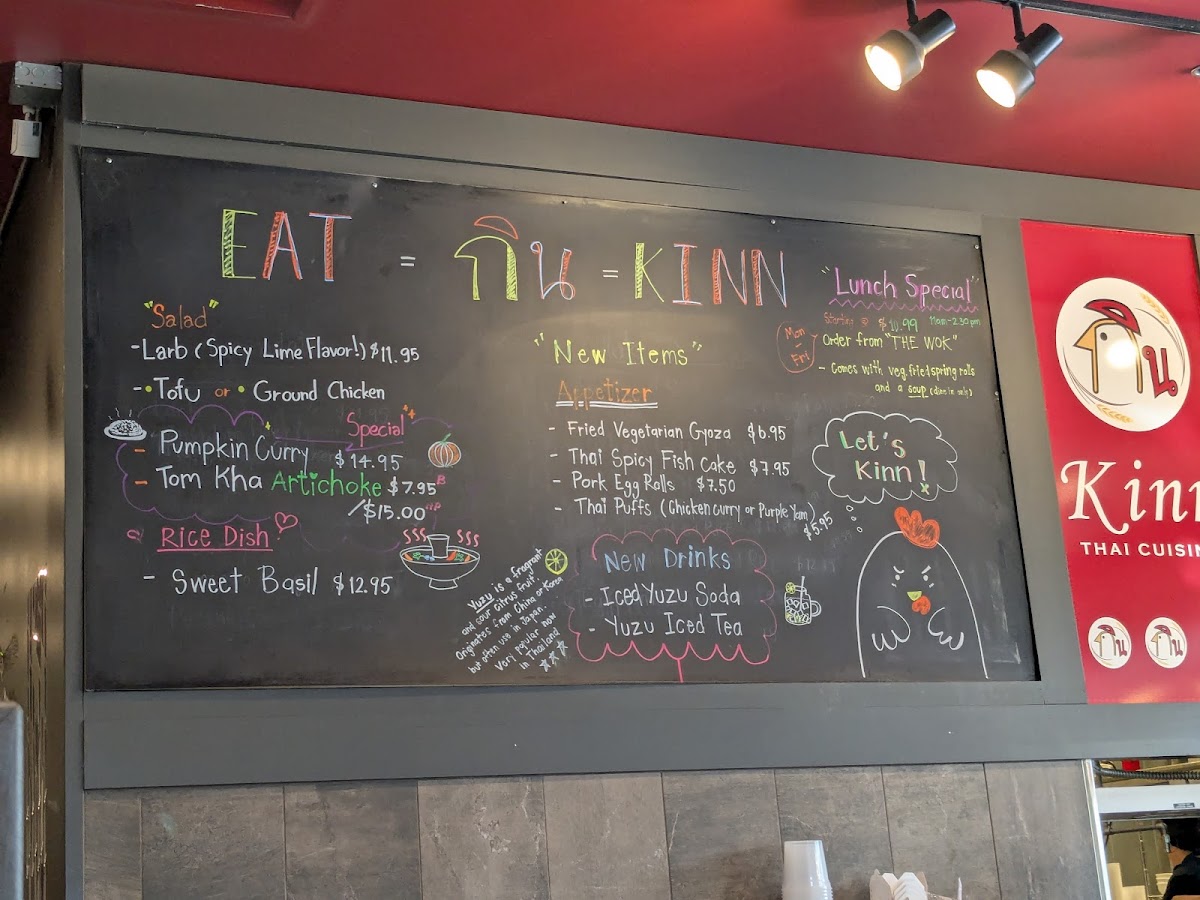 EAT = กิน = KINN
"Salad"
-Larb (Spicy Lime Flavor!) $11.95
-•Tofu or • Ground Chicken
Special
- Pumpkin Curry $14.95
- Tom Kha Artichoke $7.95 B
/$15.00 "P
Rice Dish
- Sweet Basil $12.95
"New Items"
Appetizer
- Fried Vegetarian Gyoza $6.95
- Thai Spicy Fish Cake $7.95
- Pork Egg Rolls $7.50
- Thai Puffs (Chicken curry or Purple Yam)
$5.95
Yuzu is a fragrant
and sour citrus fruit.
Originates from China or Korea
but often use in Japan.
Very popular now
in Thailand
New Drinks
- Iced Yuzu Soda
- Yuzu Iced Tea
"Lunch Special"
Starting @ $10.99 11am-2.30pm
Mon
-
Fri
Order from "THE WOK"
- Comes with veg. fried spring rolls
and a soup (dine in only)
Let's
Kinn!
กิน
Kinn
THAI CUISIN
กิน
กิน